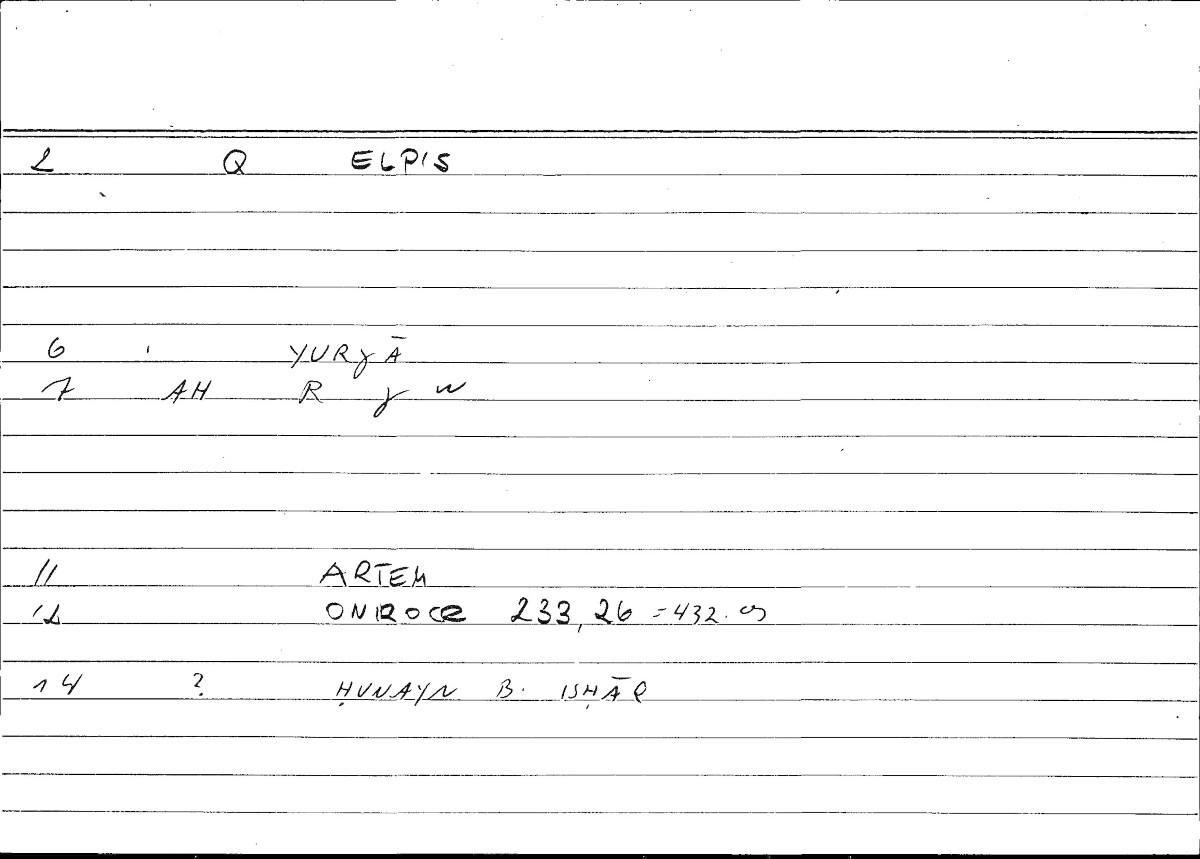 2 Q ELPIS
6 YURǧĀ
7 AH R ǧ w
11 ARTEM
12 ONIROCR 233,26 =432.
14 ? ḤUNAYN B. ISḤĀQ